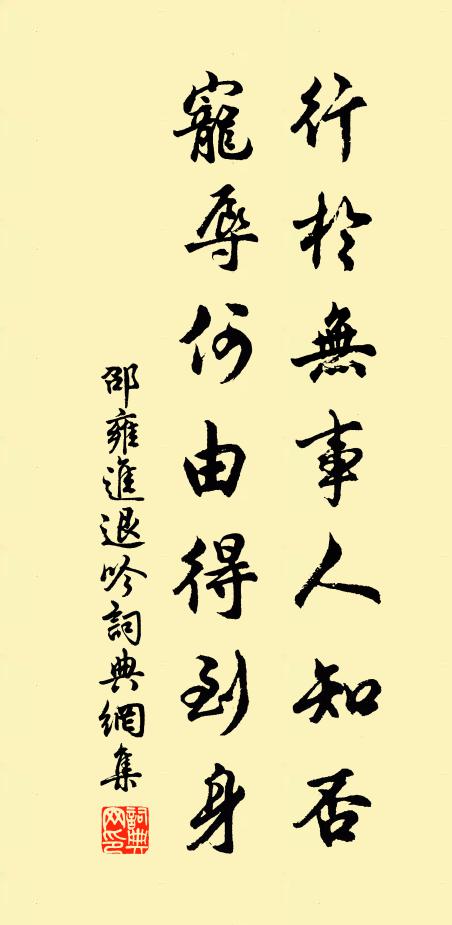 行於無事人知否
寵辱何由得到身
邵雍進退吟詞典網集
詞典
网印